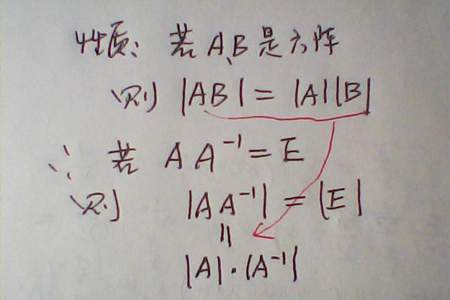 性质：若A、B是方阵
则 |AB| = |A||B|
∴ 若 A A⁻¹ = E
则 |A A⁻¹| = |E|
||
|A|·|A⁻¹|